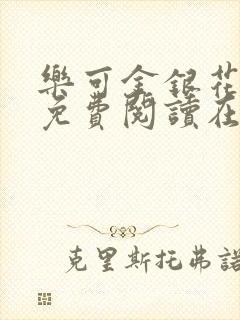 樂可金銀花
免費閱讀在
克里斯托弗諾